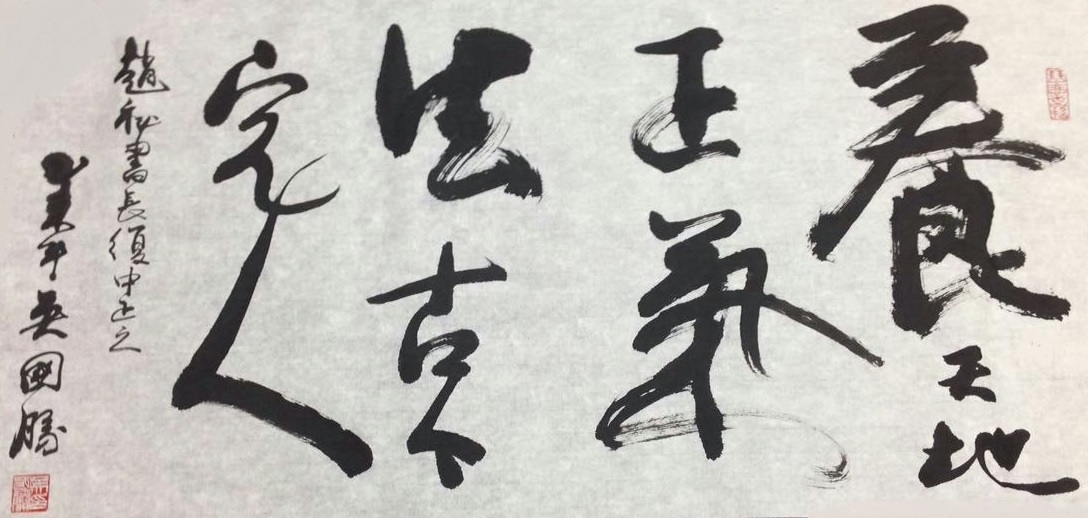 養天地
正氣
法古今
完人
趙秘書長復中正之
年吳國勝